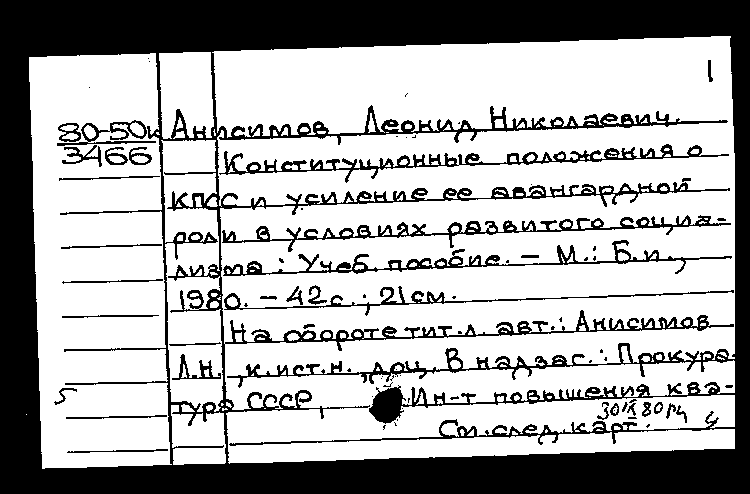 1
80-50к Анисимов, Леонид Николаевич.
3466 Конституционные положения о
КПСС и усиление ее авангардной
роли в условиях развитого социа-
лизма : Учеб. пособие. – М.: Б.и.,
1980. – 42 с. ; 21 см.
На обороте тит.л. авт.: Анисимов
Л.Н., к.ист.н., доц. В надзаг.: Прокура-
5 тура СССР, Ин-т повышения ква-
См. след. карт.